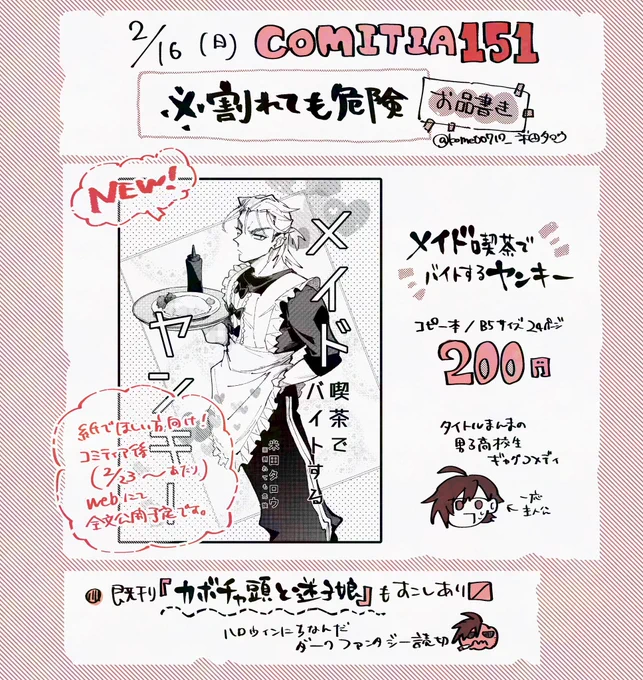 2/16(日) COMITIA151
※割れても危険
お品書き
米田タロウ
NEW!
メイド喫茶で
バイトする
ヤンキー
米田タロウ
メイド喫茶で
バイトするヤンキー
コピー本/B5サイズ24ページ
200円
タイトルまんまの
男子高校生
ギャグコメディ
一応
主人公
紙でほしい方向け!
コミティア後
(2/23〜あたり)
webにて
全文公開予定です。
既刊『カボチャ頭と迷子娘』もすこしあり
ハロウィンにちなんだ
ダークファンタジー読切